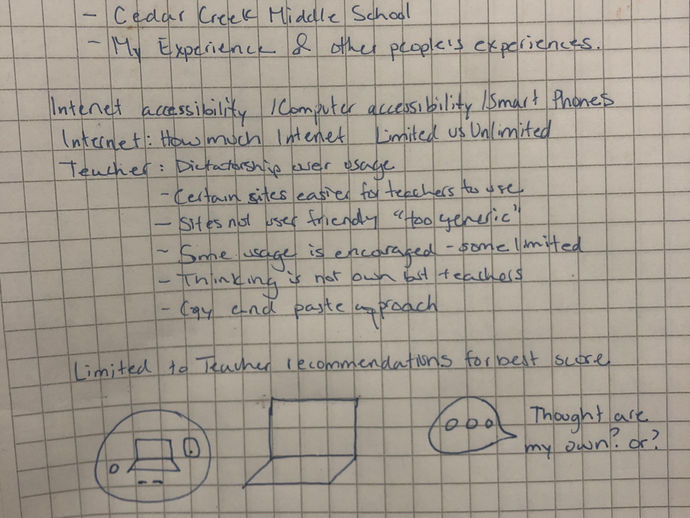 - Cedar Creek Middle School
- My Experience & other people's experiences.
Intenet accessibility /Computer accessibility /Smart Phones
Internet: How much Intenet Limited vs Unlimited
Teacher: Dictactorship over usage
- Certain sites easier for teachers to use
- Sites not user friendly "too generic"
- Some usage is encoraged - some limited
- Thinking is not own but teachers
- Copy and paste approach
Limited to Teacher recommendations for best score
Thought are
my own? or?